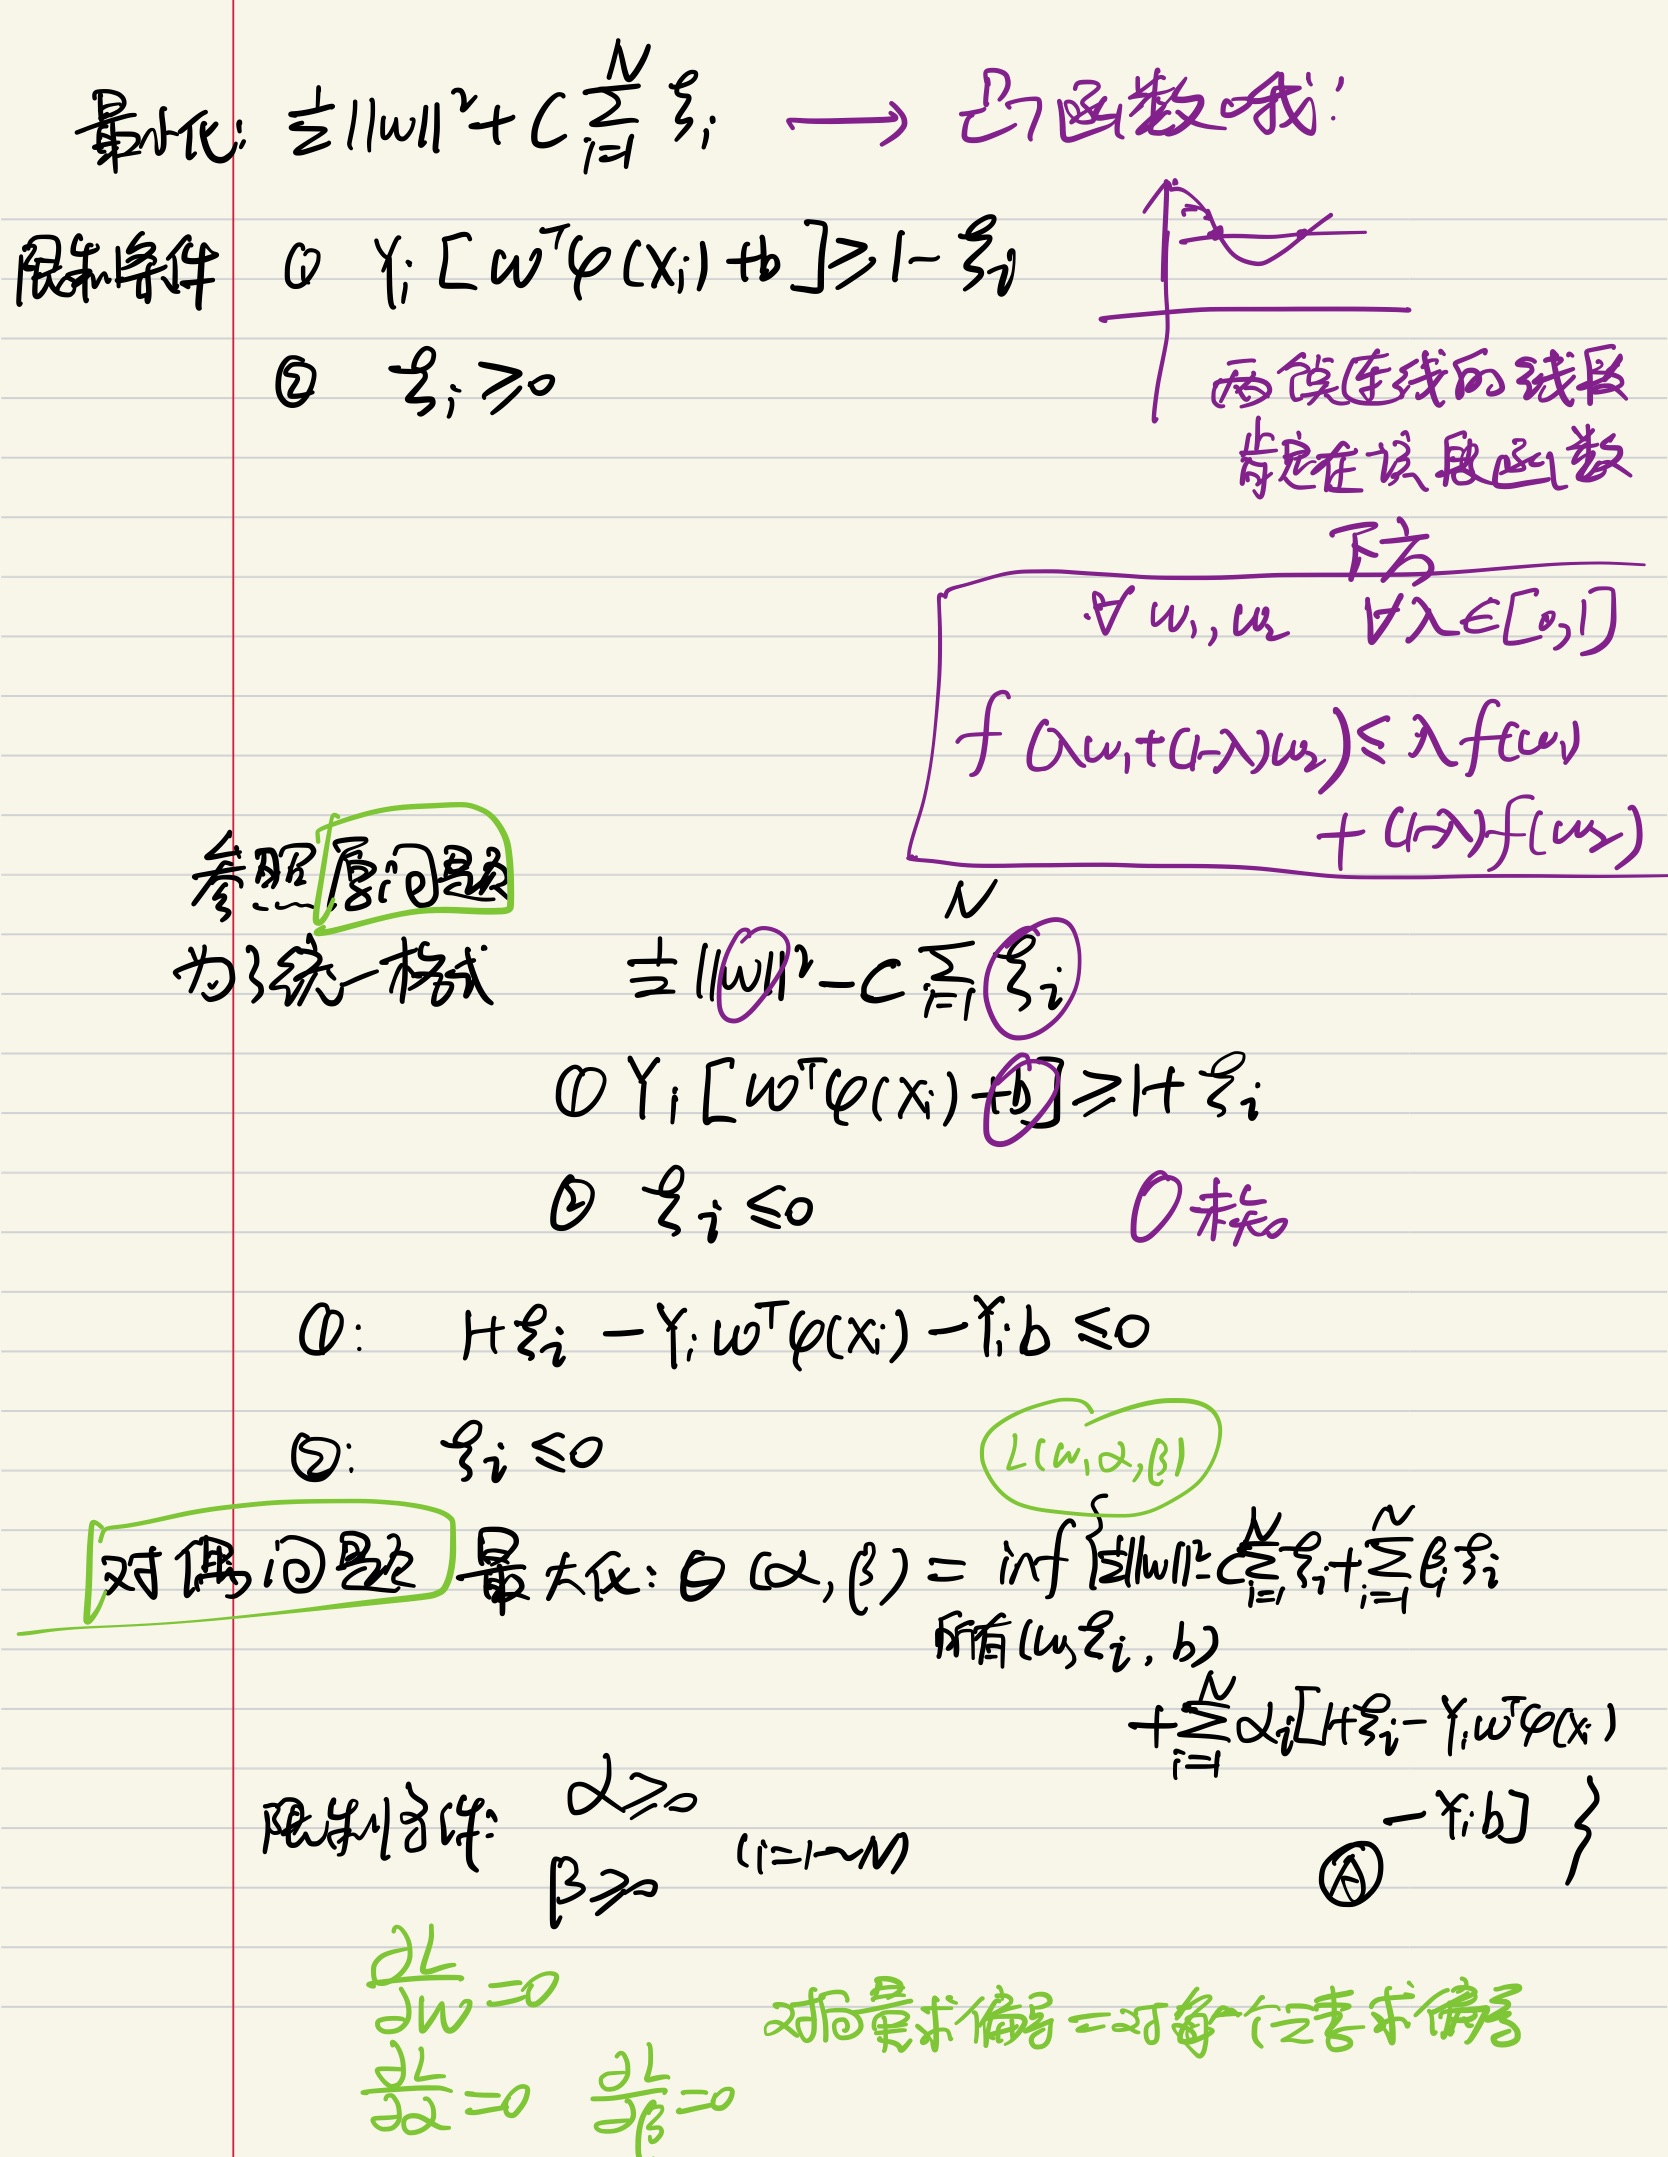 最小化: ½||w||² + C Σ_{i=1}^{N} ξ_i → 凸函数哦!
限制条件 ① Y_i [w^T φ(X_i) + b] ≥ 1 - ξ_i
② ξ_i ≥ 0
两点连线的线段
肯定在该段函数
下方
∀ w₁, w₂ ∀λ∈[0,1]
f(λw₁+(1-λ)w₂) ≤ λf(w₁)
+ (1-λ)f(w₂)
参照原问题
为了统一格式 ½||w||² - C Σ_{i=1}^{N} ξ_i
① Y_i [w^T φ(X_i) + b] ≥ 1 + ξ_i
② ξ_i ≤ 0 O 未知
①: 1+ξ_i - Y_i w^T φ(X_i) - Y_i b ≤ 0
②: ξ_i ≤ 0
L(w, α, β)
对偶问题 最大化: θ(α, β) = inf {½||w||² - C Σ_{i=1}^{N} ξ_i + Σ_{i=1}^{N} β_i ξ_i
所有(w, ξ_i, b)
+ Σ_{i=1}^{N} α_i [1+ξ_i - Y_i w^T φ(X_i)
- Y_i b] }
限制条件: α ≥ 0
(i=1~N)
β ≥ 0
Ⓐ
∂L/∂w = 0
对向量求偏导 = 对每个元素求偏导
∂L/∂α = 0 ∂L/∂β = 0